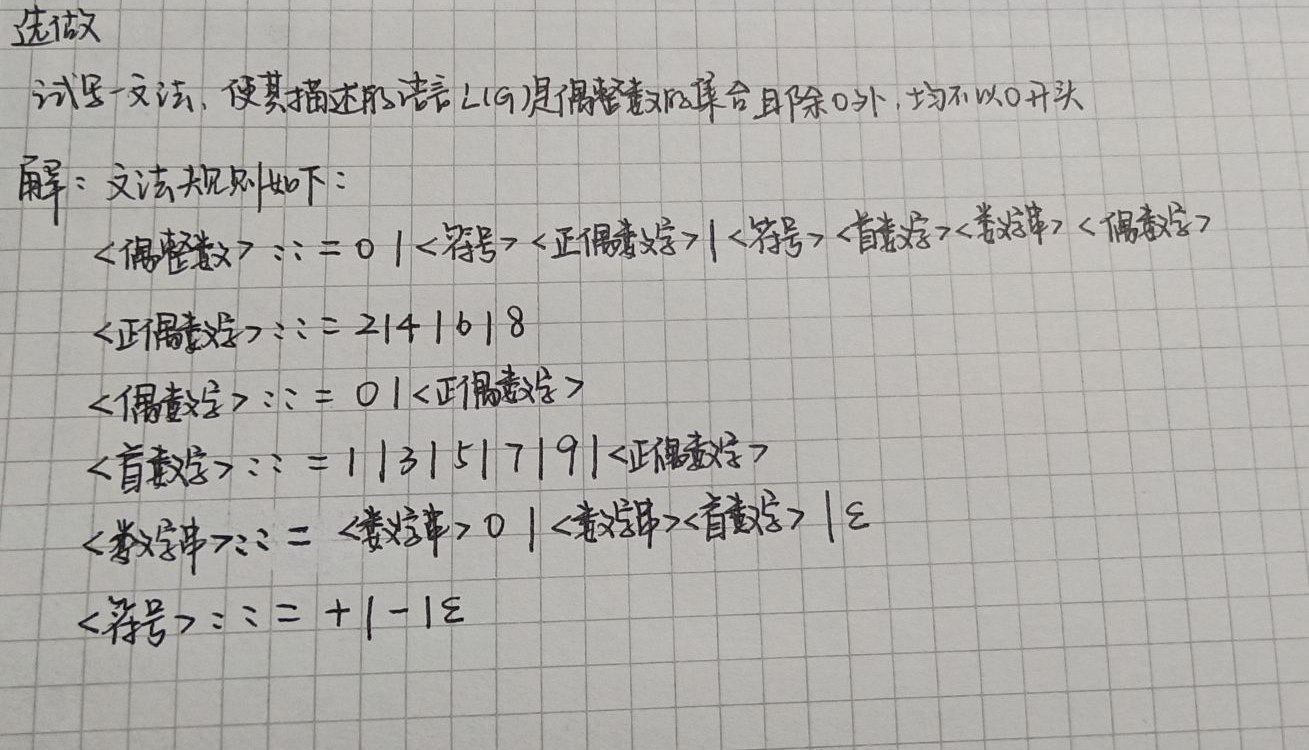 选做
试写一文法，使其描述的语言L(G)是偶整数的集合且除0外，均不以0开头
解：文法规则如下：
<偶整数>::=0|<符号><正偶数字>|<符号><首数字><数字串><偶数字>
<正偶数字>::=2|4|6|8
<偶数字>::=0|<正偶数字>
<首数字>::=1|3|5|7|9|<正偶数字>
<数字串>::=<数字串>0|<数字串><首数字>|ε
<符号>::=+|-|ε